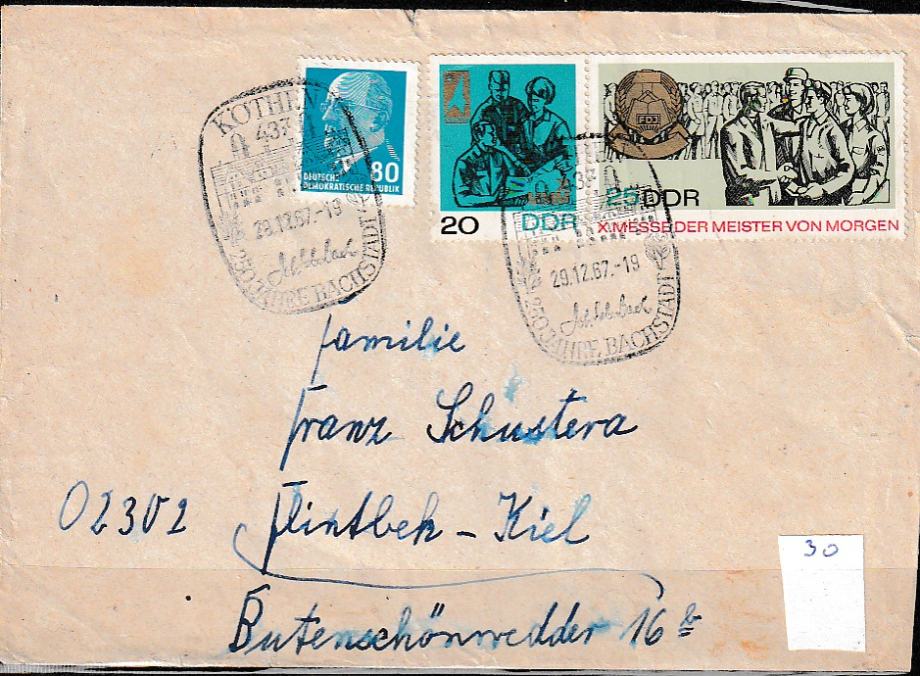 KÖTHEN
437
29.12.67.-19
Joh. Seb. Bach
250 JAHRE BACHSTADT
80
DEUTSCHE
DEMOKRATISCHE REPUBLIK
20 DDR
FDJ
25 DDR
X. MESSE DER MEISTER VON MORGEN
437
29.12.67.-19
Joh. Seb. Bach
250 JAHRE BACHSTADT
Familie
Franz Schustera
02302 Flintbek - Kiel
30
Butenschönwedder 16 b